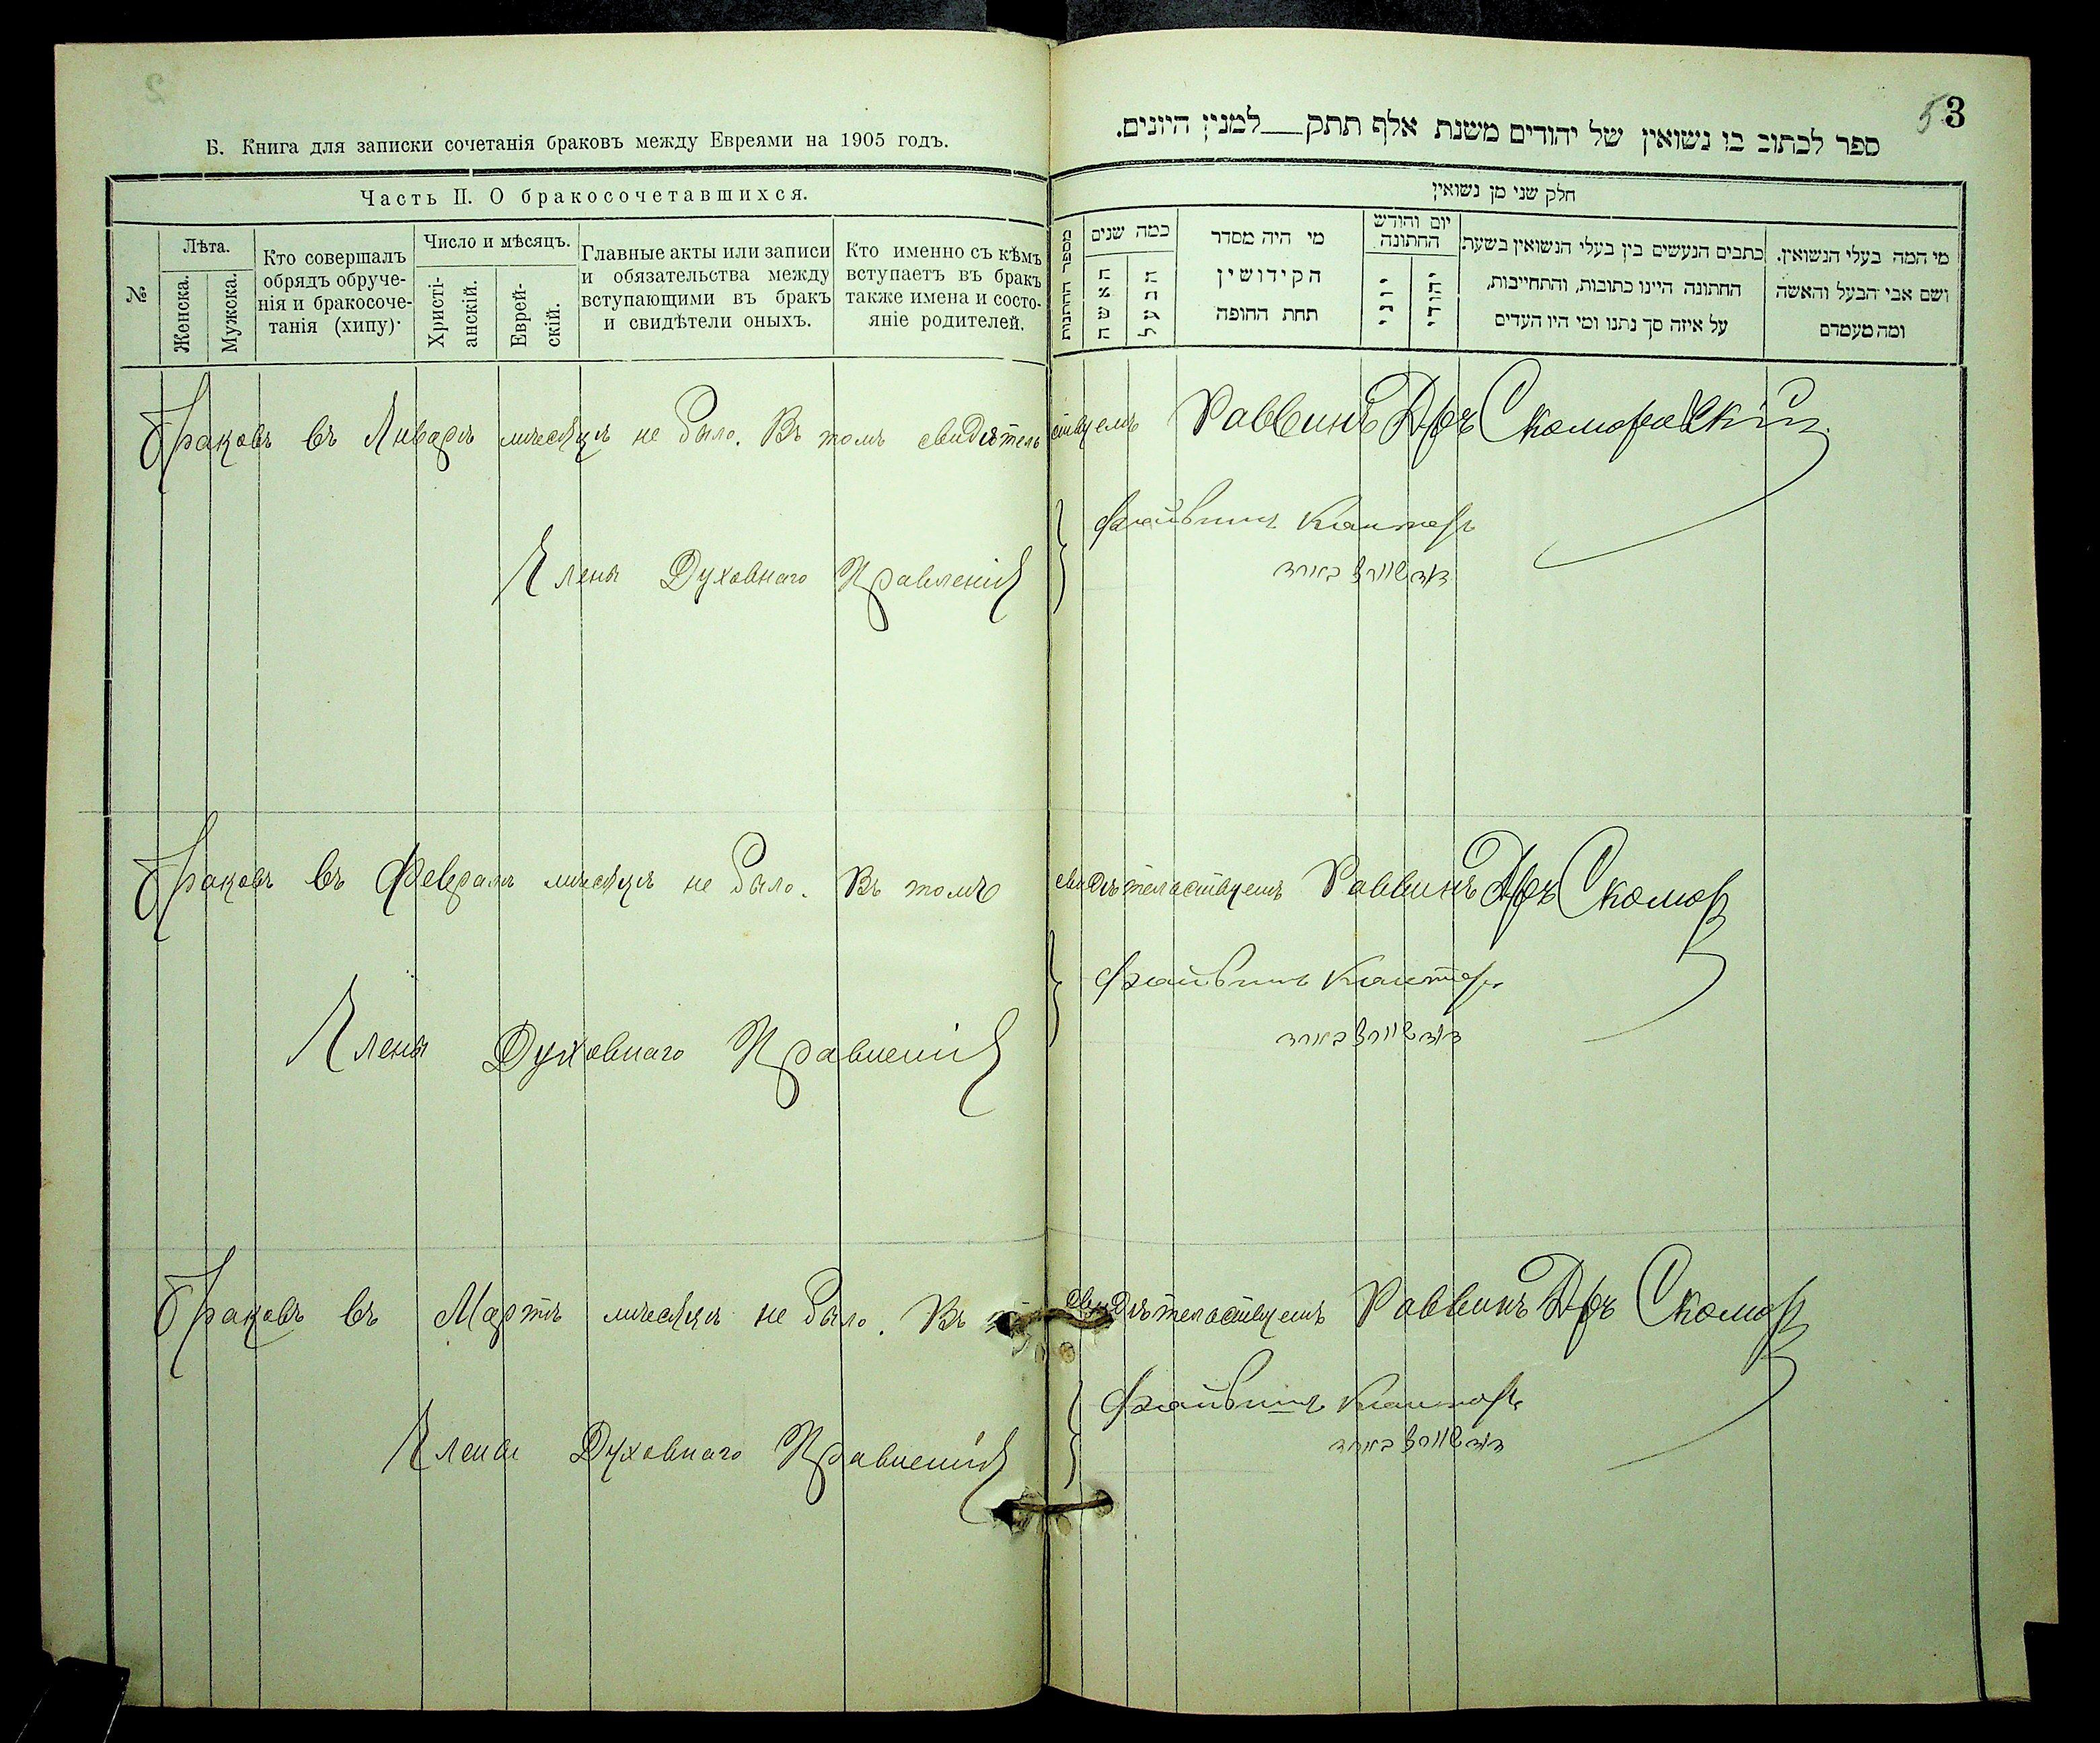 Б. Книга для записки сочетанія браковъ между Евреями на 1905 годъ.
Часть II. О бракосочетавшихся.
№
Лѣта.
Женска.
Мужска.
Кто совершалъ
обрядъ обруче-
нія и бракосоче-
танія (хипу)·
Число и мѣсяцъ.
Христі-
анскій.
Еврей-
скій.
Главные акты или записи
и обязательства между
вступающими въ бракъ
и свидѣтели оныхъ.
Кто именно съ кѣмъ
вступаетъ въ бракъ
также имена и состо-
яніе родителей.
3
5
ספר לכתוב בו נשואין של יהודים משנת אלף תתק___למנין היונים.
חלק שני מן נשואין
מספר החתונות
כמה שנים
האשה
הבעל
מי היה מסדר
הקידושין
תחת החופה
יום וחודש
החתונה
יוני
יהודי
כתבים הנעשים בין בעלי הנשואין בשעת
החתונה היינו כתובות, והתחייבות,
על איזה סך נתנו ומי היו העדים
מי המה בעלי הנשואין.
ושם אבי הבעל והאשה
ומה מעמדם
Браковъ въ Январѣ мѣсяцѣ не было. Въ томъ свидѣтельствуемъ Раввинъ Д-ръ Скоморовскій
Файвишъ Канторъ
Члены Духовнаго Правленія
Браковъ въ Февралѣ мѣсяцѣ не было. Въ томъ свидѣтельствуемъ Раввинъ Д-ръ Скомор
Файвишъ Канторъ
Члены Духовнаго Правленія
Браковъ въ Мартѣ мѣсяцѣ не было. Въ свидѣтельствуемъ Раввинъ Д-ръ Скомор
Файвишъ Канторъ
Члены Духовнаго Правленія
2